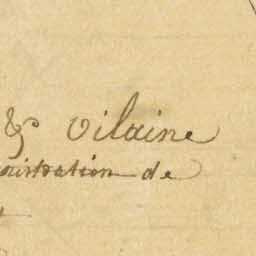 & vilaine
nistration de